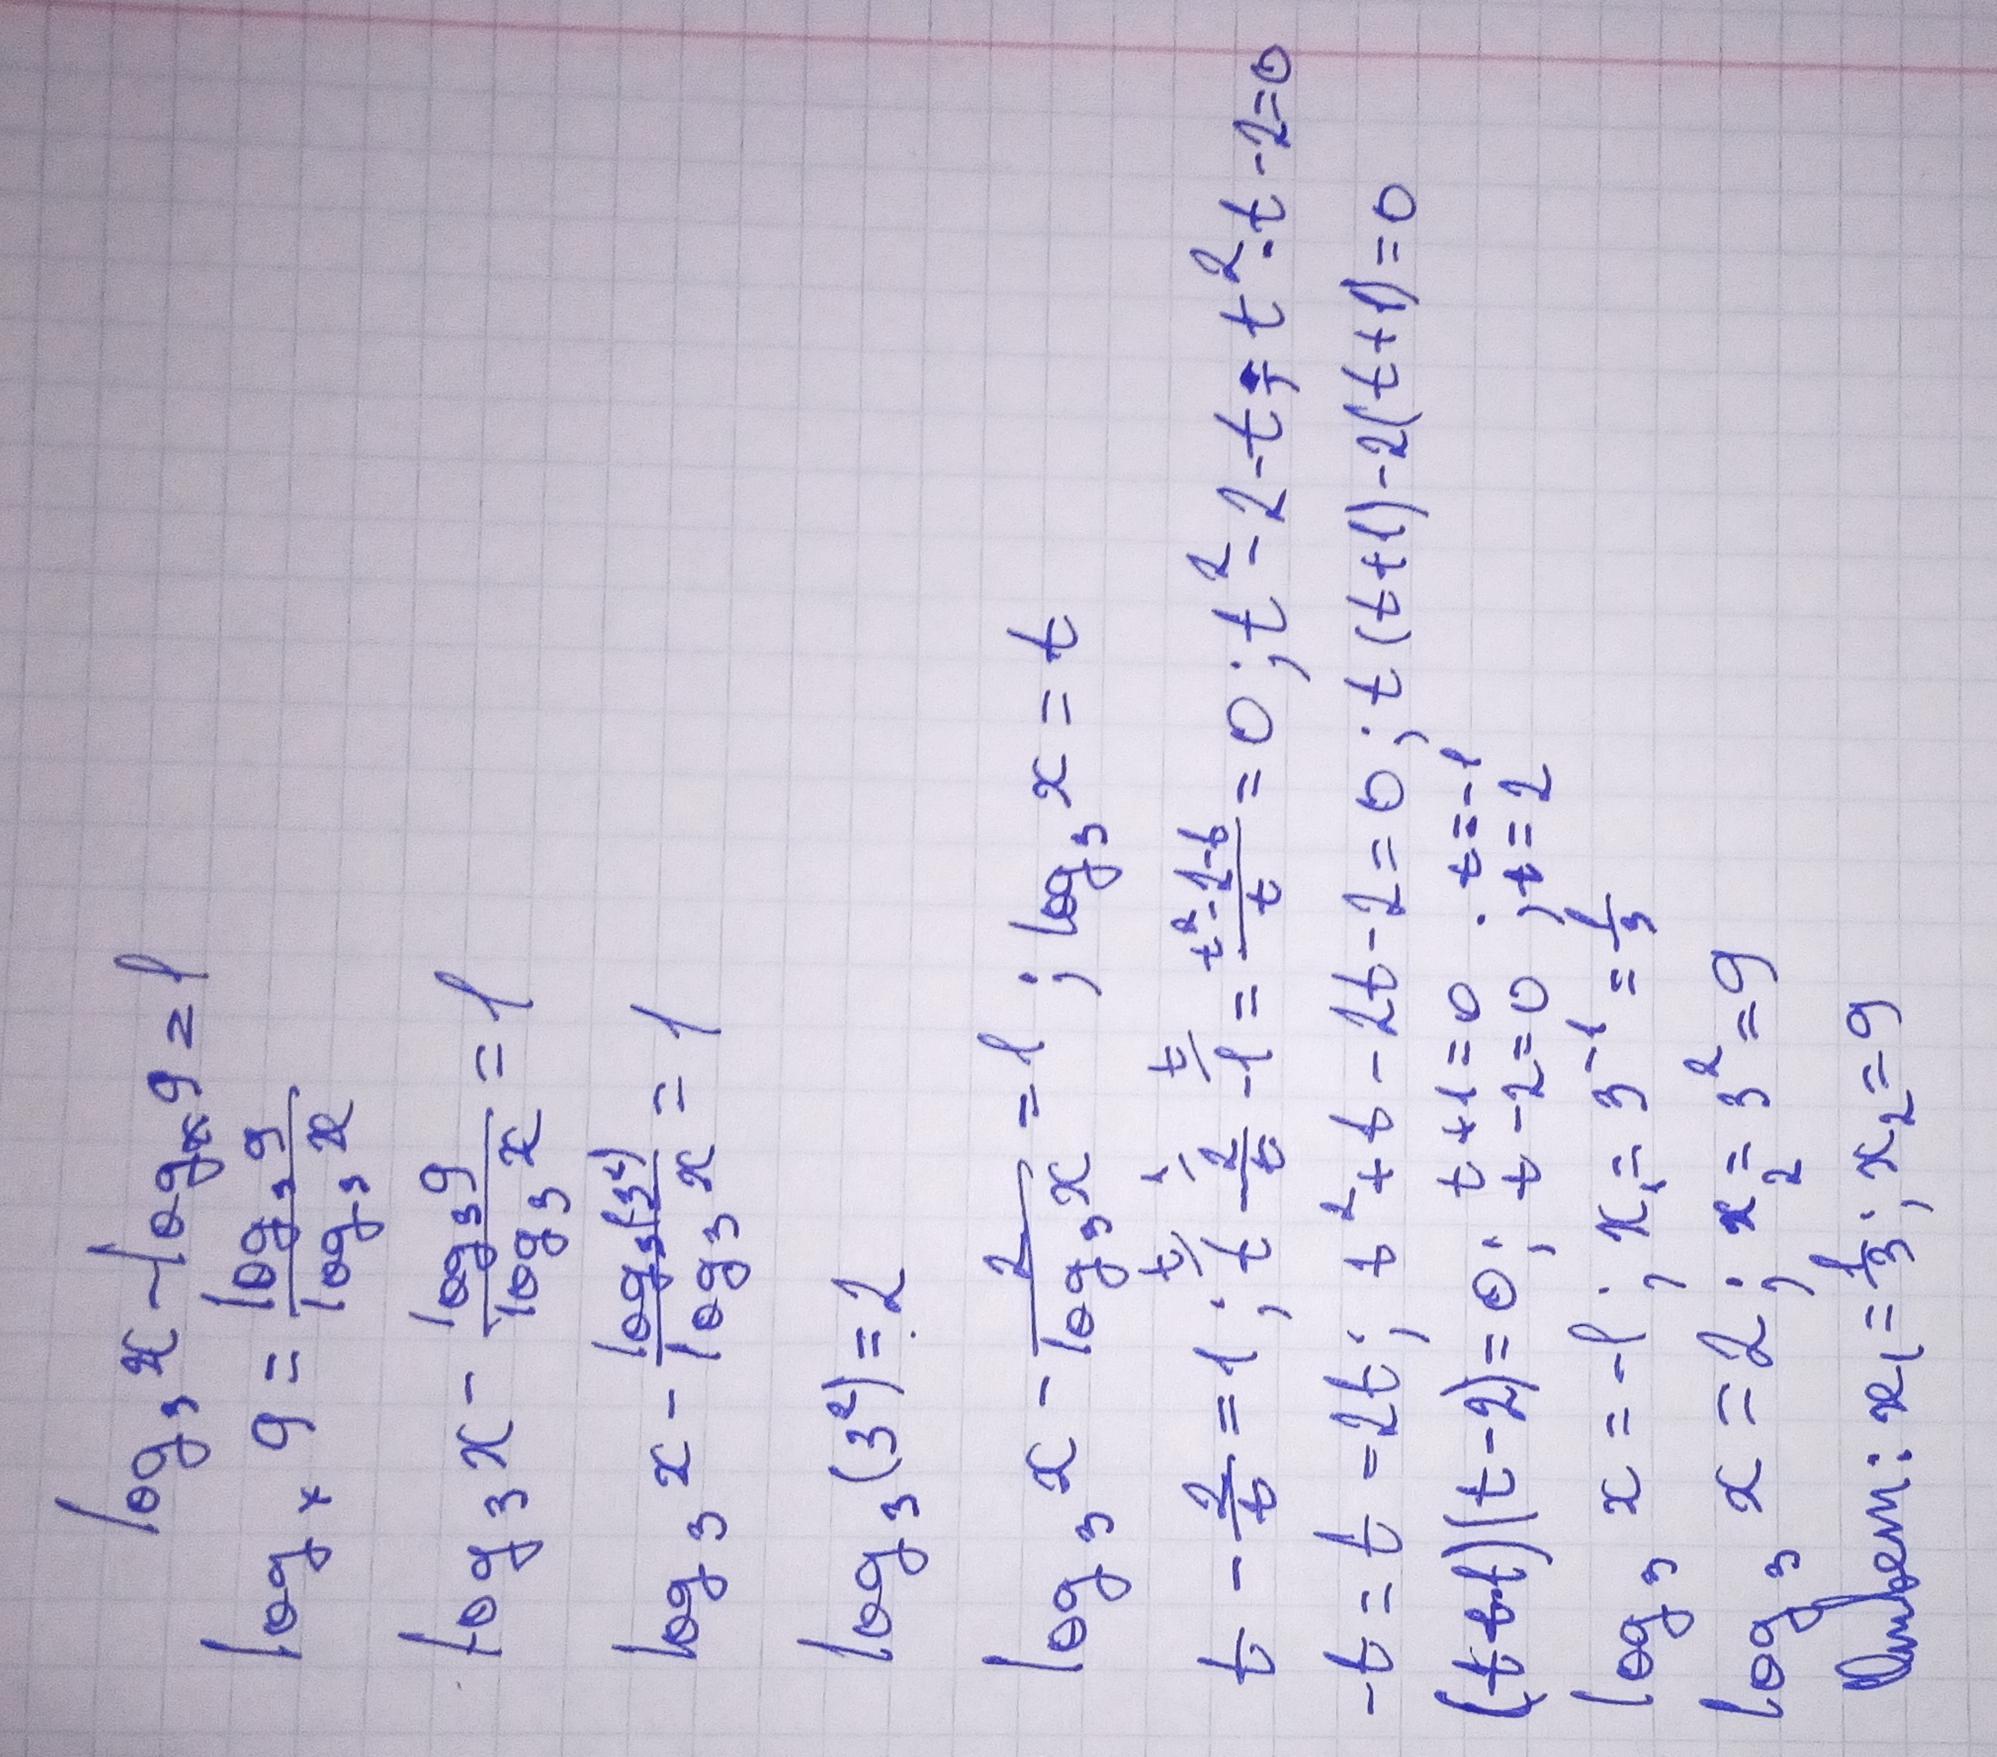 log₃x - logₓ9 = 1
logₓ9 = log₃9/log₃x
log₃x - log₃9/log₃x = 1
log₃x - log₃(3²)/log₃x = 1
log₃(3²) = 2
log₃x - 2/log₃x = 1 ; log₃x = t
t - 2/t = 1 ; t - 2/t - 1 = (t²-2-t)/t = 0 ; t² - 2 - t ; t² - t - 2 = 0
-t = t - 2t ; t² + t - 2t - 2 = 0 ; t(t+1) - 2(t+1) = 0
(t+1)(t-2) = 0 ; t+1=0 ; t=-1
t-2=0 ; t=2
log₃x = -1 ; x₁ = 3⁻¹ = 1/3
log₃x = 2 ; x₂ = 3² = 9
Ответ: x₁ = 1/3 ; x₂ = 9